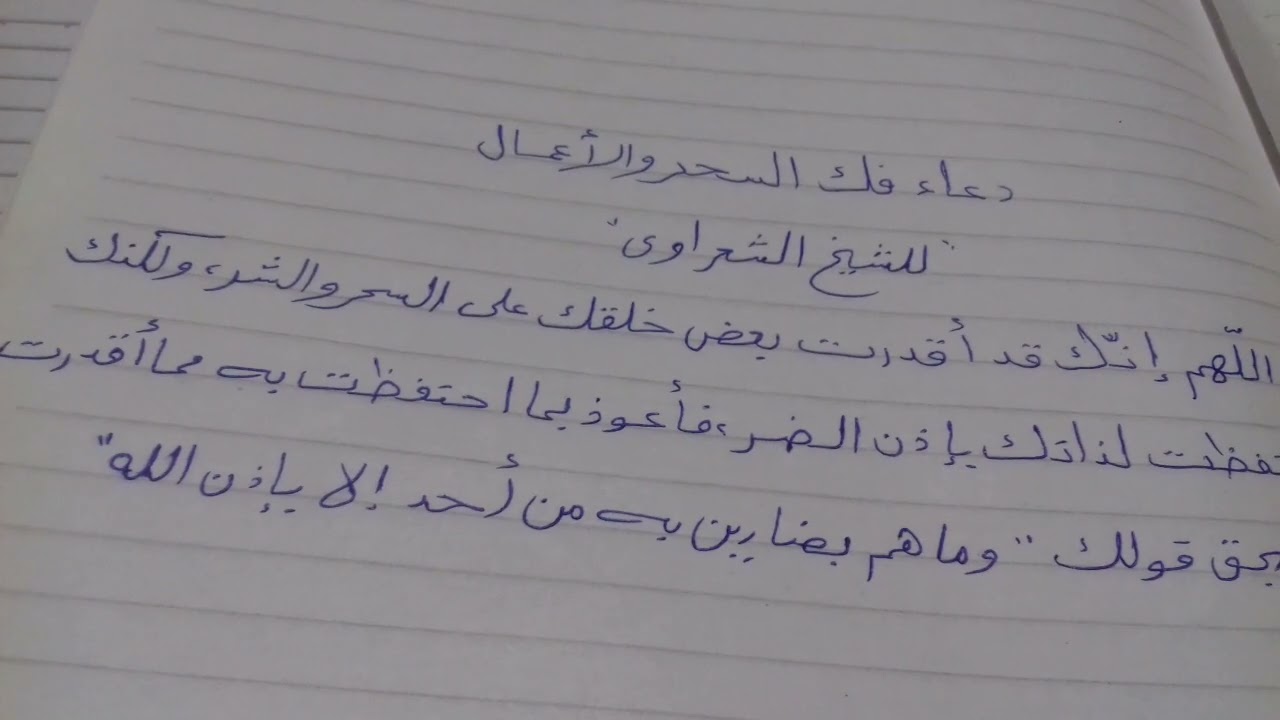 دعاء فك السحر والأعمال
"للشيخ الشعراوى"
اللّهم إنّك قد أقدرت بعض خلقك على السحر والشر، ولكنك
تفظت لذاتك بإذن الضر، فأعوذ بما احتفظت به مما أقدرت
بحق قولك "وما هم بضارين به من أحد إلا بإذن الله"